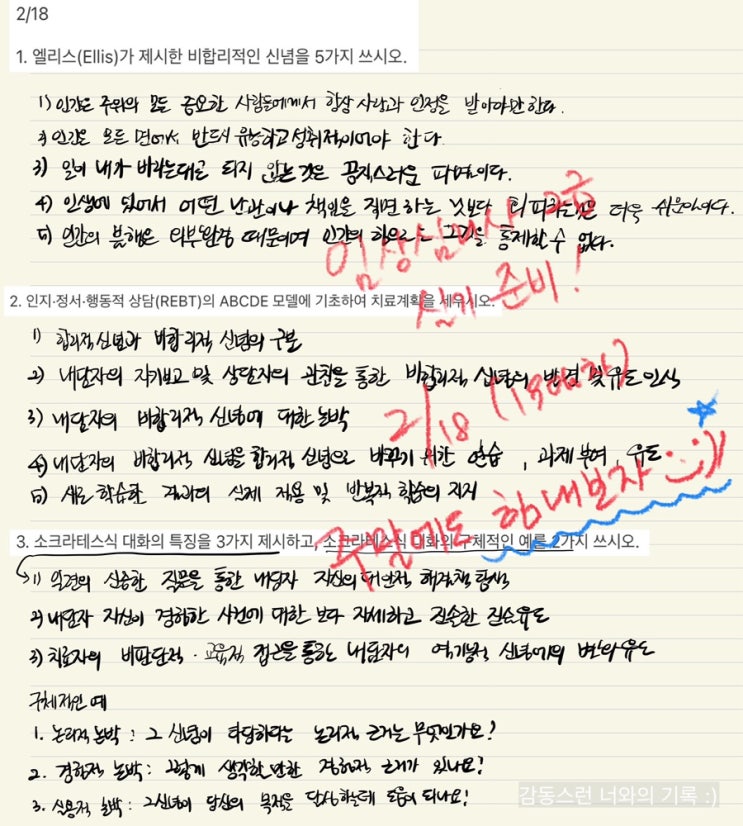 2/18
1. 엘리스(Ellis)가 제시한 비합리적인 신념을 5가지 쓰시오.
1) 인간은 주위의 모든 중요한 사람들에게서 항상 사랑과 인정을 받아야만 한다.
2) 인간은 모든 면에서 반드시 유능하고 성취적이어야 한다.
3) 일이 내가 바라는대로 되지 않는 것은 끔찍스러운 파멸이다.
4) 인생에 있어서 어떤 난관이나 책임을 직면하는 것보다 회피하는것은 더욱 쉬운일이다.
5) 인간의 불행은 외부환경 때문이며 인간의 힘으로는 그것을 통제할 수 없다.
임상심리사 2급
실기 준비!
2. 인지·정서·행동적 상담(REBT)의 ABCDE 모델에 기초하여 치료계획을 세우시오.
1) 합리적 신념과 비합리적 신념의 구분
2) 내담자의 자기보고 및 상담자의 관찰을 통한 비합리적 신념의 발견 및 유도 인식
3) 내담자의 비합리적 신념에 대한 논박
4) 내담자의 비합리적 신념을 합리적 신념으로 바꾸기 위한 연습, 과제부여, 유도
5) 새로 학습한 결과의 실제 적용 및 반복적 학습의 지지
2/18 (19일차)
주말에도 힘내보자 :))
3. 소크라테스식 대화의 특징을 3가지 제시하고, 소크라테스식 대화의 구체적인 예를 2가지 쓰시오.
1) 일련의 신중한 질문을 통한 내담자 자신의 대안적 해결책 탐색
2) 내담자 자신이 경험한 사건에 대한 보다 자세하고 진솔한 진술유도
3) 치료자의 비판단적·교육적 접근을 통한 내담자의 역기능적 신념에의 변화 유도
구체적인 예
1. 논리적 논박 : 그 신념이 타당하다는 논리적 근거는 무엇인가요?
2. 경험적 논박 : 그렇게 생각할 만한 경험적 근거가 있나요?
3. 실용적 논박 : 그 신념이 당신의 목적을 달성하는데 도움이 되나요?
감동스런 너와의 기록 :)